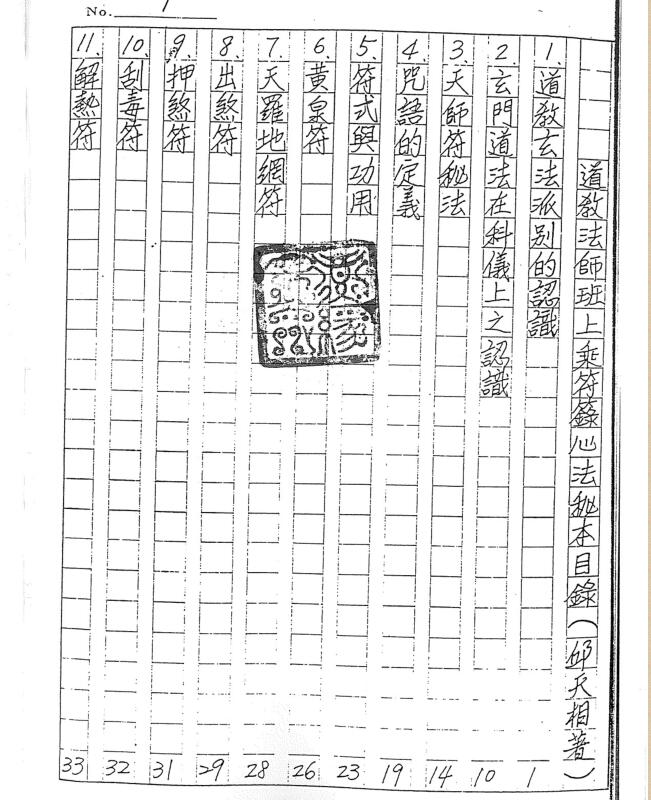 No. 1
道教法師班上乘符籙心法秘本目錄(邱天相著)
1. 道教玄法派別的認識 1
2. 玄門道法在科儀上之認識 10
3. 天師符秘法 14
4. 咒語的定義 19
5. 符式與功用 23
6. 黃泉符 26
7. 天羅地網符 28
8. 出煞符 29
9. 押煞符 31
10. 刮毒符 32
11. 解熱符 33